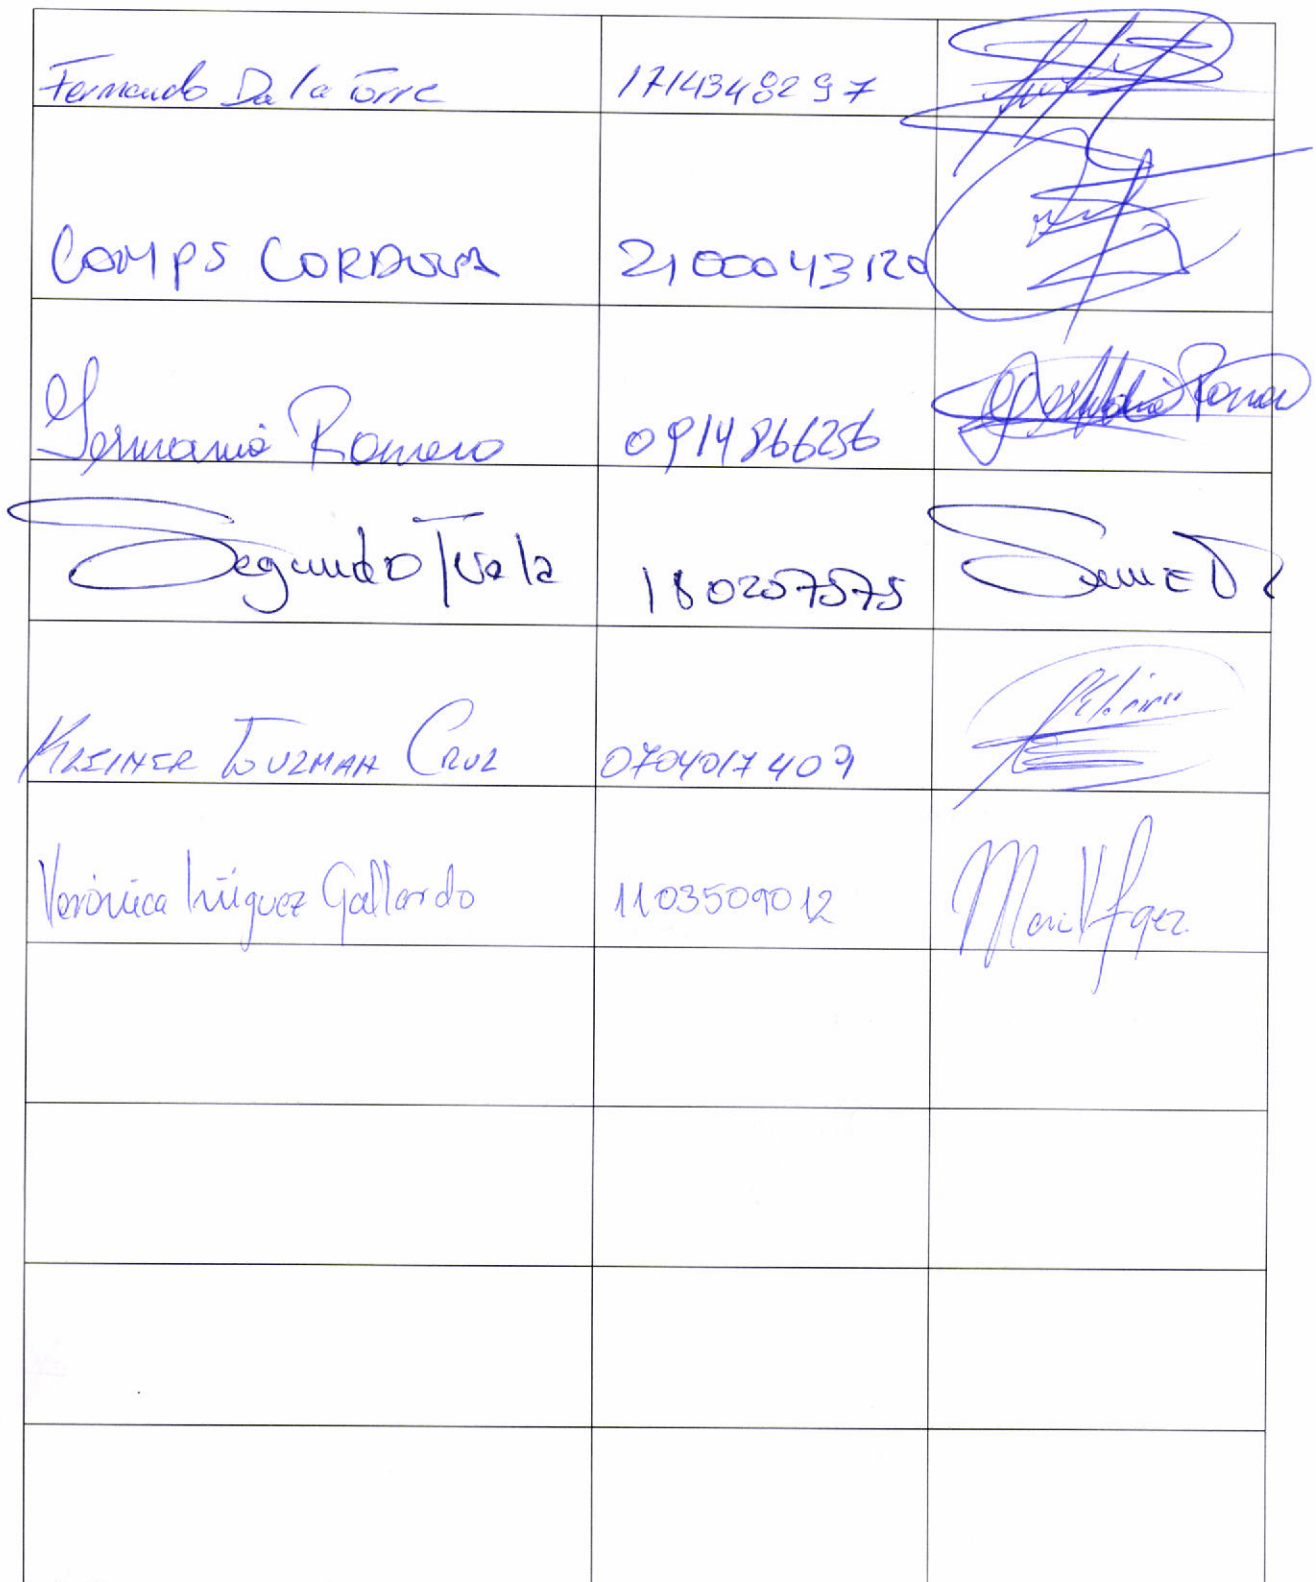 Fernando De la Torre 1714348297
COMPS CORDOVA 2100043120
Germania Romero 0914866256
Segundo 180257575
KLEINER GUZMAN CRUZ 0704017409
Verónica Iñiguez Gallardo 1103509012